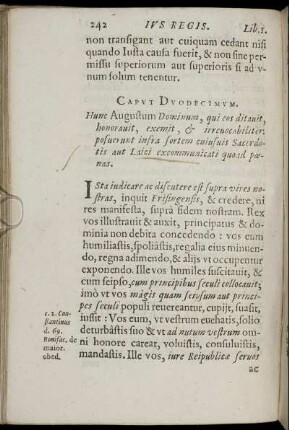 242 IVS REGIS. Lib.1.
non transigant aut cuiquam cedant nisi
quando Iusta causa fuerit, & non sine per-
missu superiorum aut superioris si ad v-
num solum tenentur.
CAPVT DVODECIMVM.
Hunc Augustum Dominum, qui eos ditauit,
honorauit, exemit, & irreuocabiliter
posuerunt infra sortem cuiusuis Sacerdo-
tis aut Laici excommunicati quoad pœ-
nas.
ISta indicare ac discutere est supra vires no-
stras, inquit Frisingensis, & credere, ni
res manifesta, supra fidem nostram. Rex
vos illustrauit & auxit, principatus & do-
minia non debita concedendo : vos eum
humiliastis, spoliastis, regalia eius minuen-
do, regna adimendo, & alijs vt occupentur
exponendo. Ille vos humiles suscitauit, &
cum seipso, cum principibus seculi collocauit;
imò vt vos magis quam seipsum aut princi-
pes seculi populi reuereantur, cupijt, suasit,
iussit : Vos eum, vt vestrum euehatis, solio
deturbastis suo & vt ad nutum vestrum om-
ni honore carear, voluistis, consuluistis,
mandastis. Ille vos, iure Reipublicæ seruos
ac
c. 2. Con-
stantinus
d. 69.
Bonifac. de
maior.
obed.